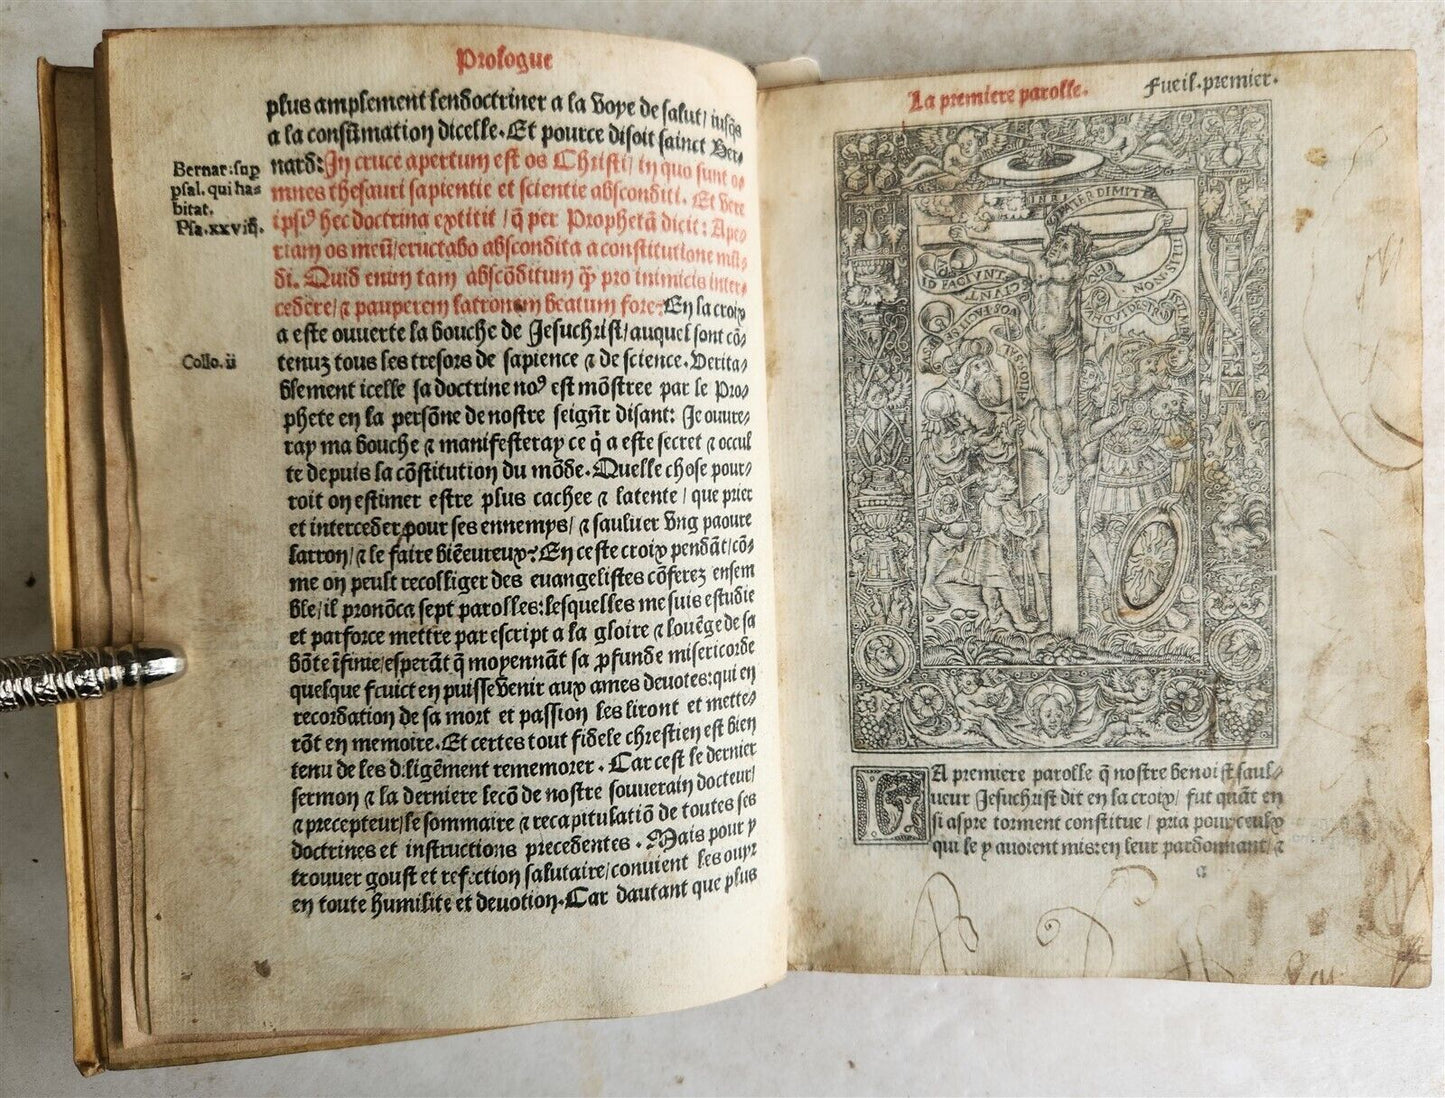 Prologue
plus amplement lendoctriner a la voye de salut/ iusq̄s
a la consūmation dicelle. Et pource disoit sainct Ber-
nard: In cruce apertum est os Christi/ in quo sunt o-
mnes thesauri sapientie et scientie absconditi. Et vere
ipsiꝰ hec doctrina extitit/ q̄ per Prophetā dicit: Ape-
riam os meū/ eructabo abscondita a constitutione mū-
di. Quid enim tam abscōditum q̄ꝫ pro inimicis inter-
cedere/ ⁊ pauperem latronem beatum fore? En la croix
a este ouuerte la bouche de Jesuchrist/ auquel sont cō-
tenuz tous les tresors de sapience ⁊ de science. Verita-
blement icelle sa doctrine noꝰ est mōstree par le Pro-
phete en la persōne de nostre seignr̄ disant: Je ouure-
ray ma bouche ⁊ manifesteray ce q̄ a este secret ⁊ occul
te depuis la cōstitution du mōde. Quelle chose pour-
roit on estimer estre plus cachee ⁊ latente/ que prier
et interceder pour ses ennemys/ ⁊ sauluer vng paoure
larron/ ⁊ le faire biēeureux? En ceste croix pendāt/ cō-
me on peult recolliger des euangelistes cōferez ensem
ble/ il pronōca sept parolles: lesquelles me suis estudie
et parforce mettre par escript a la gloire ⁊ louēge de sa
bōte īfinie/ esperāt q̄ moyennāt sa ꝓfunde misericorde
quelque fruict en puisse venir aux ames deuotes: qui en
recordation de sa mort et passion les liront et mette-
rōt en memoire. Et certes tout fidele chrestien est bien
tenu de les diligēment rememorer. Car cest le dernier
sermon ⁊ la derniere lecō de nostre souuerain docteur/
⁊ precepteur/ le sommaire ⁊ recapitulatiō de toutes ses
doctrines et instructions precedentes. Mais pour y
trouuer goust et refection salutaire/ conuient les ouyr
en toute humilite et deuotion. Car dautant que plus
Bernar: sup̄
psal. qui ha-
bitat.
Psa. xxvii.
Collo. ii
La premiere parolle.
Fueil. premier.
INRI
PATER DIMITTE
ILLIS NON
EN
ID FACIUNT
LA premiere parolle q̄ nostre benoist saul-
ueur Jesuchrist dit en la croix/ fut quāt en
si aspre torment constitue/ pria pour ceulx
qui le y auoient mis: en leur pardonnant/ ⁊
a